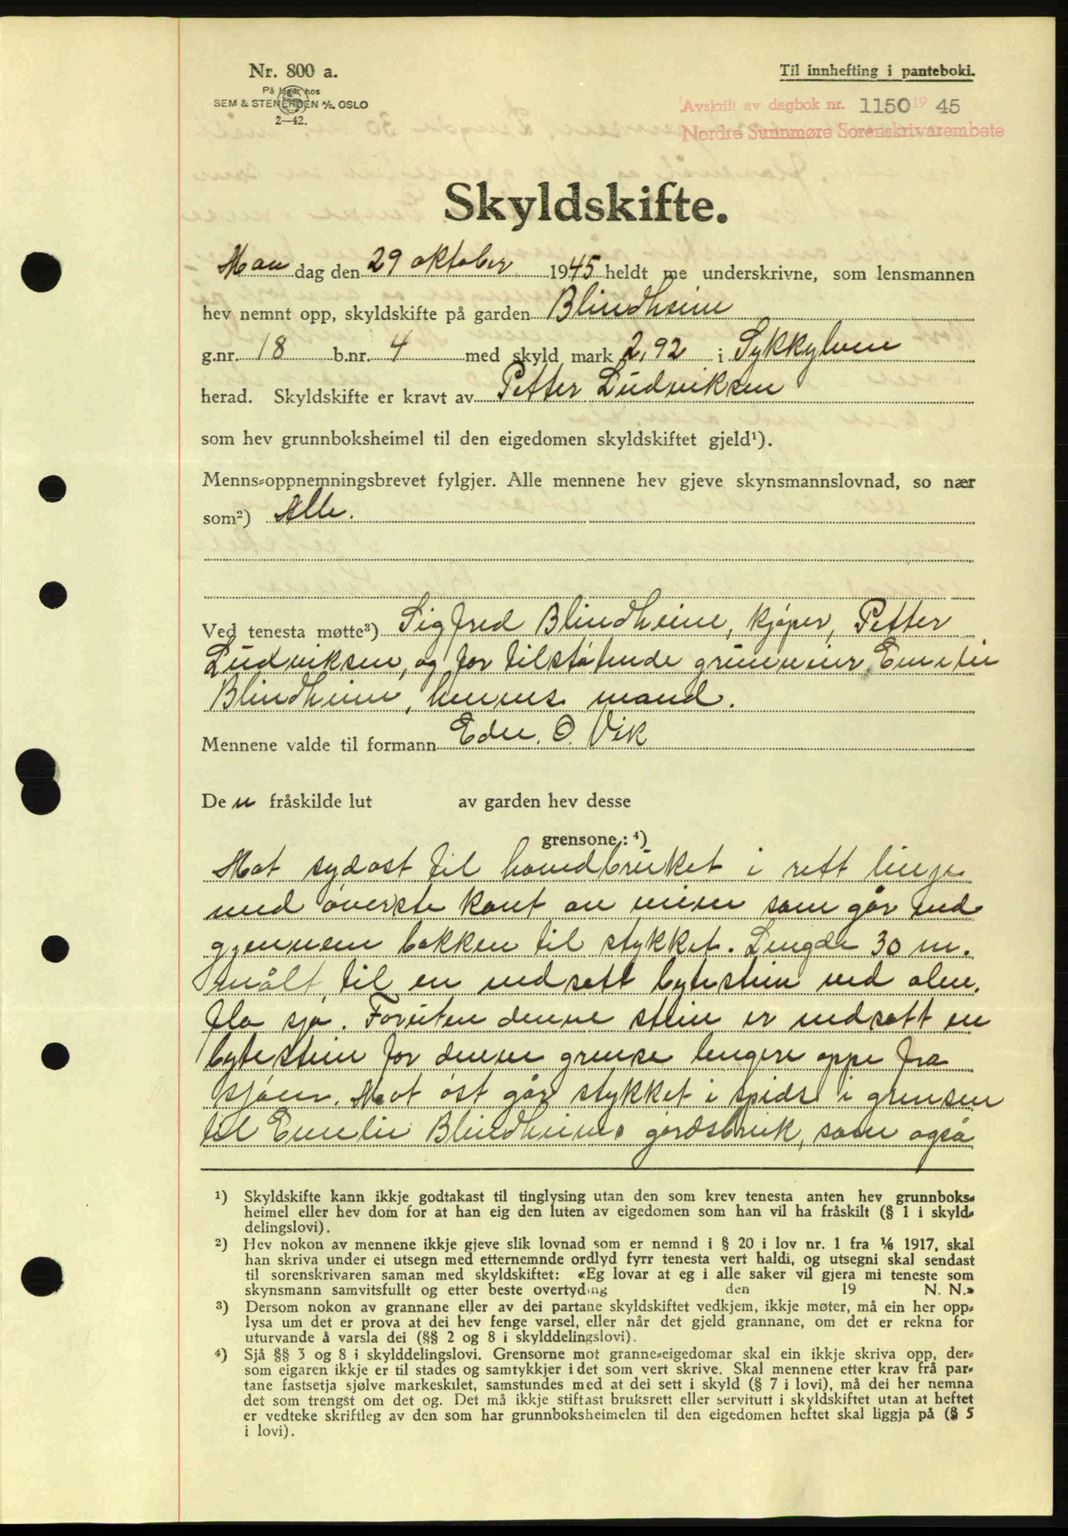 Nr. 800 a.
På lager hos
SEM & STENERSEN A/S, OSLO
2—42.
Til innhefting i panteboki.
Avskrift av dagbok nr. 1150 19 45
Nordre Sunnmøre Sorenskrivarembete
Skyldskifte.
Man dag den 29 oktober 1945 heldt me underskrivne, som lensmannen
hev nemnt opp, skyldskifte på garden Blindheim
g.nr. 18 b.nr. 4 med skyld mark 2,92 i Sykkylven
herad. Skyldskifte er kravt av Petter Ludviksen
som hev grunnboksheimel til den eigedomen skyldskiftet gjeld¹).
Menns-oppnemningsbrevet fylgjer. Alle mennene hev gjeve skynsmannslovnad, so nær
som²) Alle.
Ved tenesta møtte³) Sigfred Blindheim, kjøper, Petter
Ludviksen, og for tilstøtende grunneier Emelie
Blindheim, hennes mand.
Mennene valde til formann Edv. O. Vik
De n fråskilde lut av garden hev desse
grensone: ⁴)
Mot sydost til hovedbruket i rett linje
med øverste kant av veien som går ned
gjennem bakken til stykket. Lengde 30 m.
målt til en nedsatt bytestein ved alm.
flo sjø. Foruten denne stein er nedsatt en
bytestein for denne grense lengere oppe fra
sjøen. Mot øst går stykket i spids i grensen
til Emelie Blindheims gårdsbruk, som også
¹) Skyldskifte kann ikkje godtakast til tinglysing utan den som krev tenesta anten hev grunnboks-
heimel eller hev dom for at han eig den luten av eigedomen som han vil ha fråskilt (§ 1 i skyld-
delingslovi).
²) Hev nokon av mennene ikkje gjeve slik lovnad som er nemnd i § 20 i lov nr. 1 fra 1/6 1917, skal
han skriva under ei utsegn med etternemnde ordlyd fyrr tenesta vert haldi, og utsegni skal sendast
til sorenskrivaren saman med skyldskiftet: «Eg lovar at eg i alle saker vil gjera mi teneste som
skynsmann samvitsfullt og etter beste overtyding den 19 N. N.»
³) Dersom nokon av grannane eller av dei partane skyldskiftet vedkjem, ikkje møter, må ein her opp-
lysa um det er prova at dei hev fenge varsel, eller når det gjeld grannane, om det er rekna for
uturvande å varsla dei (§§ 2 og 8 i skylddelingslovi).
⁴) Sjå §§ 3 og 8 i skylddelingslovi. Grensorne mot granne-eigedomar skal ein ikkje skriva opp, der-
som eigaren ikkje er til stades og samtykkjer i det som vert skrive. Skal mennene etter krav frå par-
tane fastsetja sjølve markeskilet, samstundes med at dei sett i skyld (§ 7 i lovi), må dei her nemna
det som trengst om det og. Det må ikkje stiftast bruksrett eller servitutt i skyldskiftet utan at heftet
er vedteke skriftleg av den som har grunnboksheimelen til den eigedomen heftet skal liggja på (§ 5
i lovi).